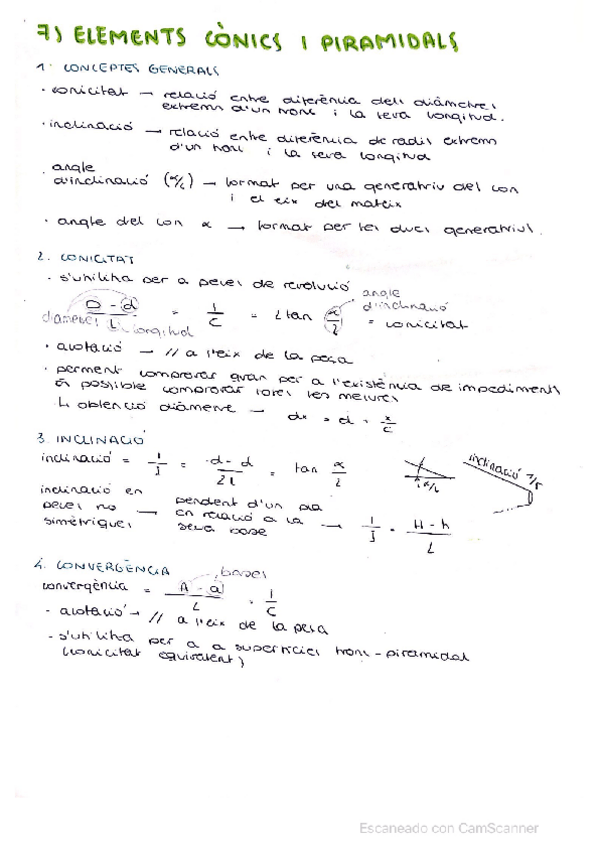 7) ELEMENTS CÒNICS I PIRAMIDALS
1. CONCEPTES GENERALS
· conicitat → relació entre diferència dels diàmetres
extrems d'un tronc i la seva longitud.
· inclinació → relació entre diferència de radis extrems
d'un tronc i la seva longitud
· angle
d'inclinació (α/2) → format per una generatriu del con
i el eix del mateix
· angle del con α → format per les dues generatrius.
2. CONICITAT
· s'utilitza per a peces de revolució
D - d / L = 1/C = 2 tan α/2 = conicitat
angle
d'inclinació
diàmetres
longitud
· acotació → // a l'eix de la peça
· permet comprovar quan per a l'existència de impediments
és possible comprovar totes les mesures
↳ obtenció diàmetre → dx = d + x/C
3. INCLINACIÓ
inclinació = 1/I = D - d / 2L = tan α/2
α/2
inclinació 1/5
inclinació en
peces no
simètriques → pendent d'un pla
en relació a la
seva base → 1/I = H - h / L
4. CONVERGÈNCIA
bases
convergència = A - a / L = 1/C
· acotació → // a l'eix de la peça
· s'utilitza per a a superfícies tronc-piramidal
(conicitat equivalent)
Escaneado con CamScanner